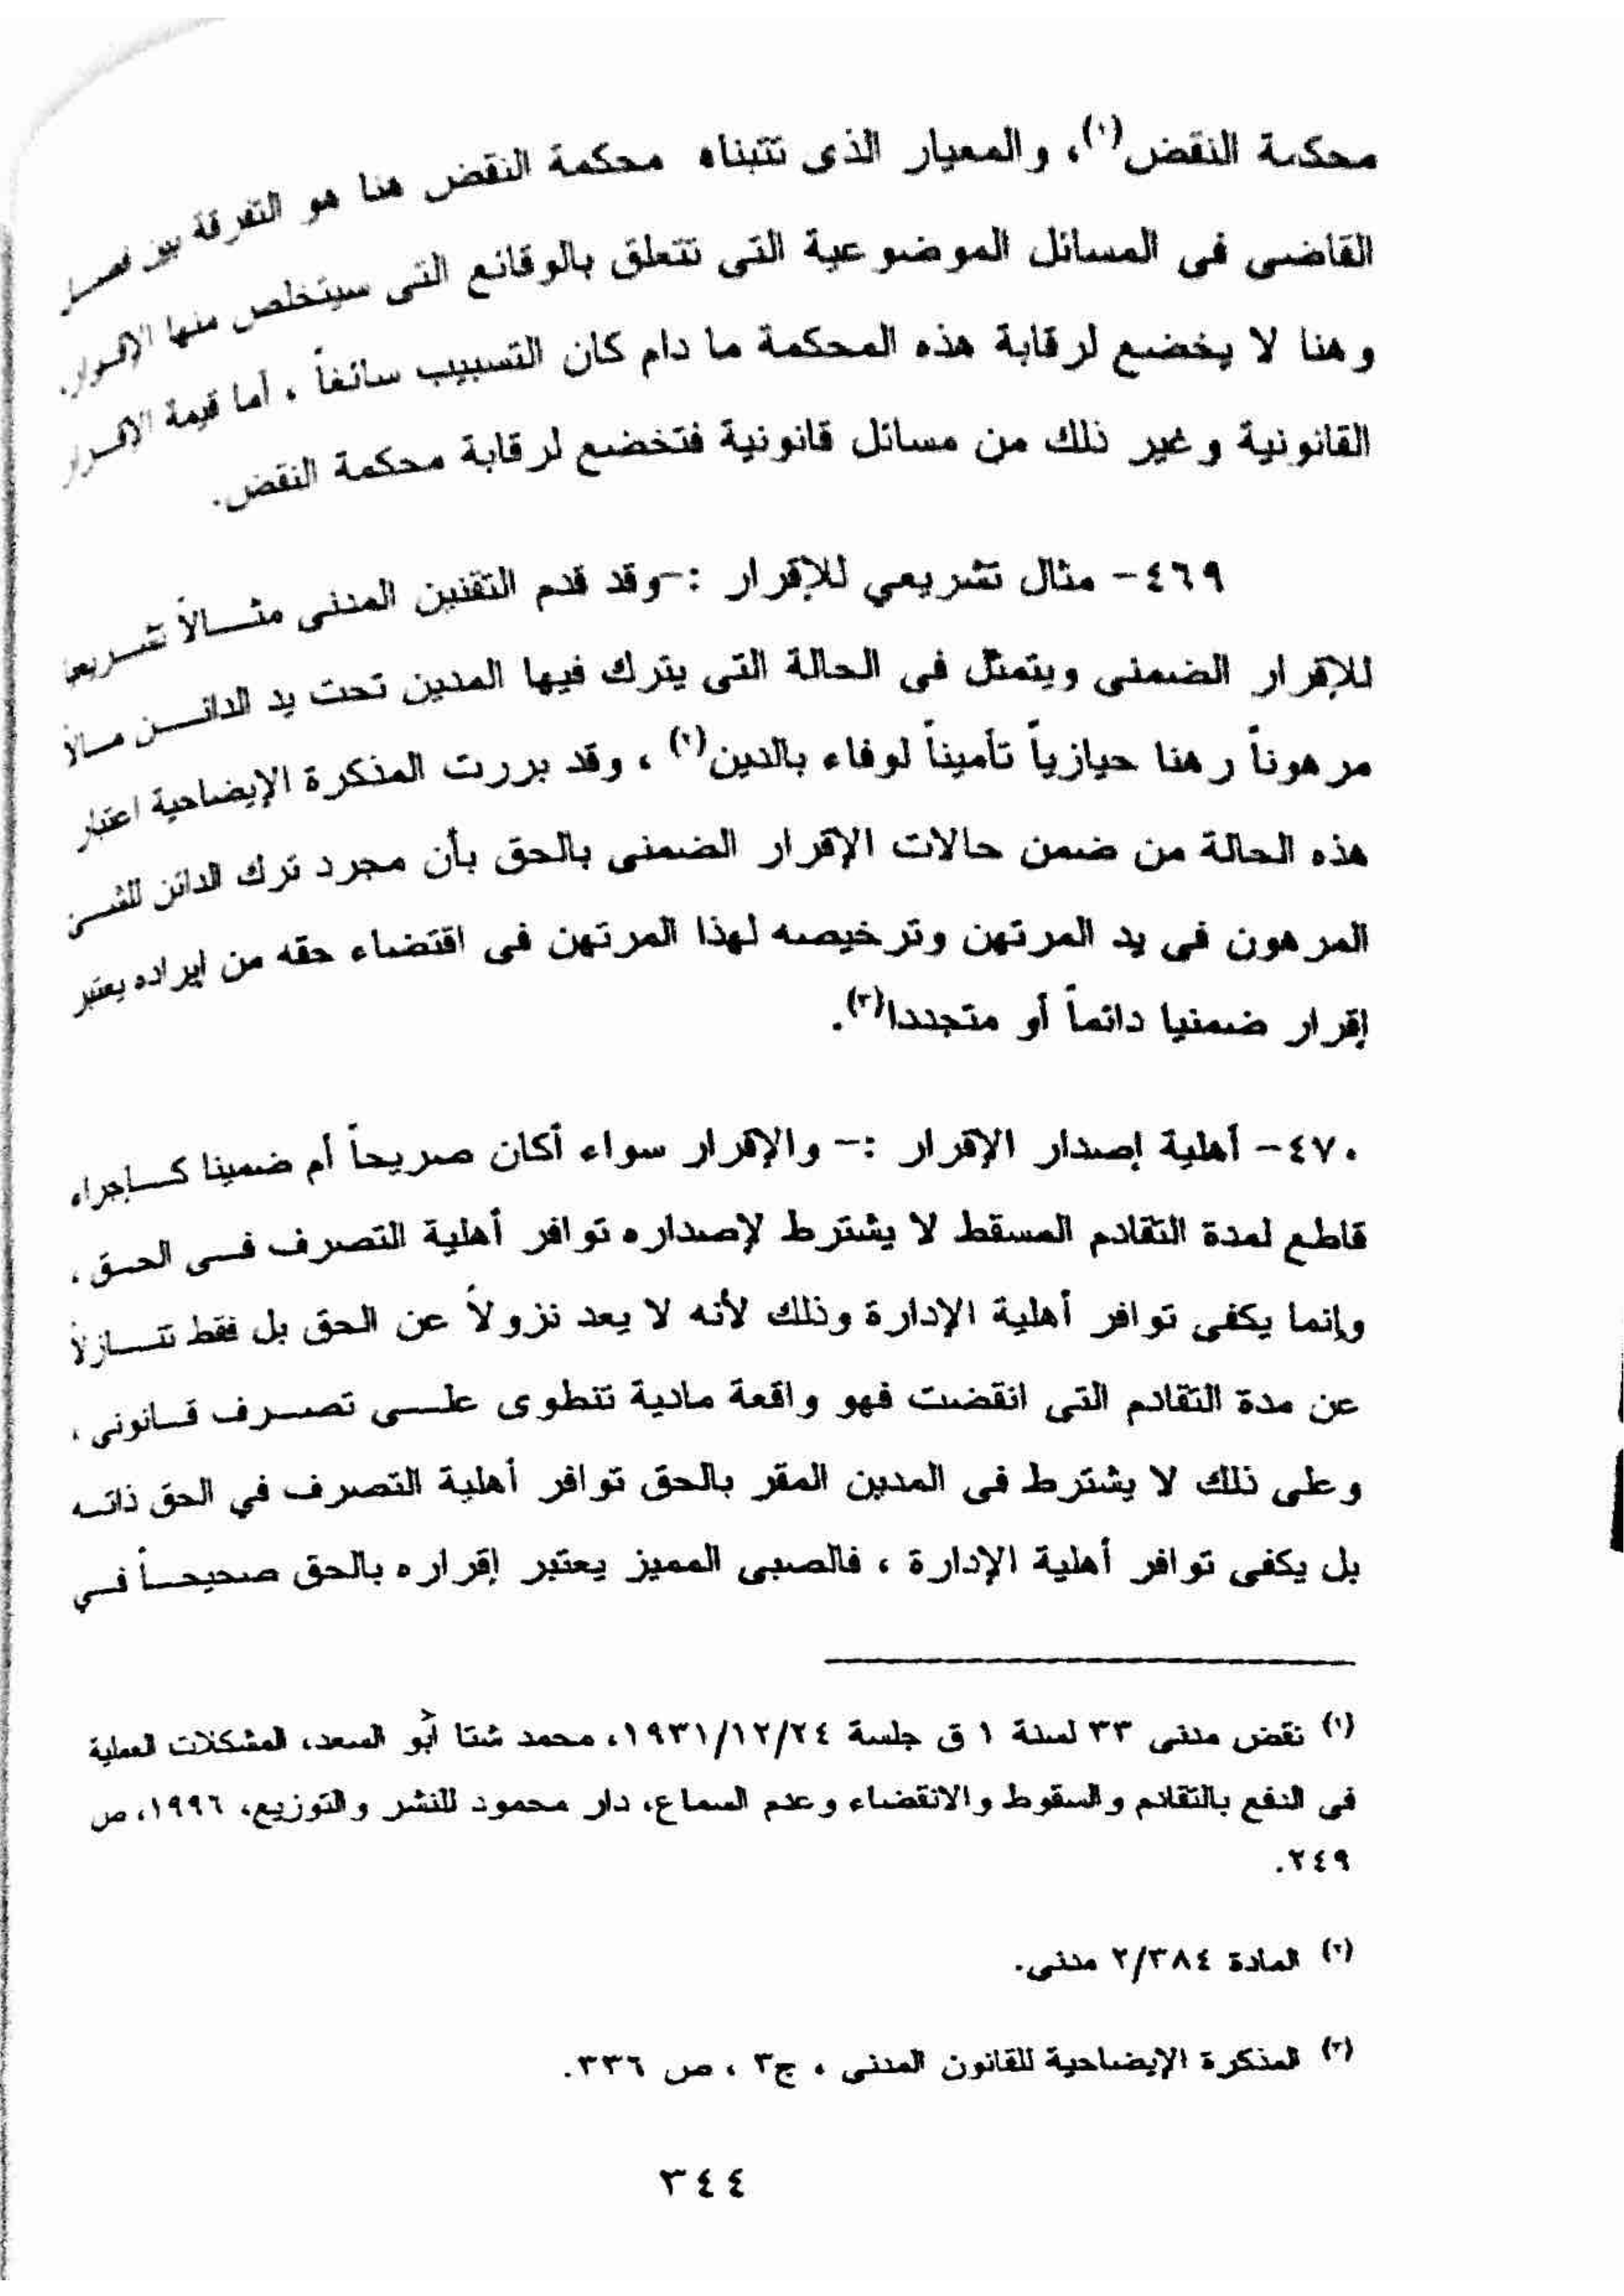 محكمة النقض(١)، والمعيار الذى تتبناه محكمة النقض هنا هو التفرقة بين فصل
القاضى فى المسائل الموضوعية التى تتعلق بالوقائع التى سيتخلص منها الإقرار،
وهنا لا يخضع لرقابة هذه المحكمة ما دام كان التسبيب سائغاً ، أما قيمة الإقرار
القانونية وغير ذلك من مسائل قانونية فتخضع لرقابة محكمة النقض.
٤٦٩- مثال تشريعي للإقرار :-وقد قدم التقنين المدنى مثالاً تشريعيا
للإقرار الضمنى ويتمثل فى الحالة التى يترك فيها المدين تحت يد الدائن مالاً
مرهوناً رهنا حيازياً تأميناً لوفاء بالدين(٢) ، وقد بررت المذكرة الإيضاحية اعتبار
هذه الحالة من ضمن حالات الإقرار الضمنى بالحق بأن مجرد ترك الدائن للشئ
المرهون فى يد المرتهن وترخيصه لهذا المرتهن فى اقتضاء حقه من إيراده يعتبر
إقرار ضمنيا دائماً أو متجددا(٣).
٤٧٠- أهلية إصدار الإقرار :- والإقرار سواء أكان صريحاً أم ضمينا كإجراء
قاطع لمدة التقادم المسقط لا يشترط لإصداره توافر أهلية التصرف فى الحق ،
وإنما يكفى توافر أهلية الإدارة وذلك لأنه لا يعد نزولاً عن الحق بل فقط تنازلاً
عن مدة التقادم التى انقضت فهو واقعة مادية تنطوى على تصرف قانونى ،
وعلى ذلك لا يشترط فى المدين المقر بالحق توافر أهلية التصرف في الحق ذاته
بل يكفى توافر أهلية الإدارة ، فالصبى المميز يعتبر إقراره بالحق صحيحاً في
(١) نقض مدنى ٣٣ لسنة ١ ق جلسة ١٩٣١/١٢/٢٤، محمد شتا أبو السعد، المشكلات العملية
فى الدفع بالتقادم والسقوط والانقضاء وعدم السماع، دار محمود للنشر والتوزيع، ١٩٩٦، ص
٢٤٩.
(٢) المادة ٢/٣٨٤ مدنى.
(٣) المذكرة الإيضاحية للقانون المدنى ، ج٣ ، ص ٣٣٦.
٣٤٤